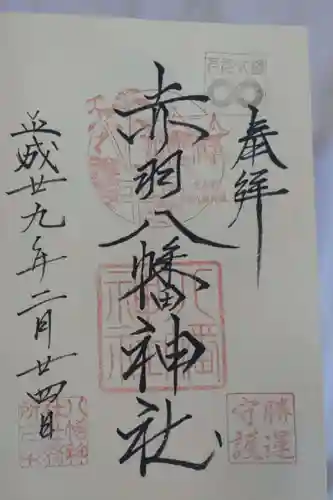 奉拝
赤羽八幡神社
平成廿九年二月廿四日
勝運
守護